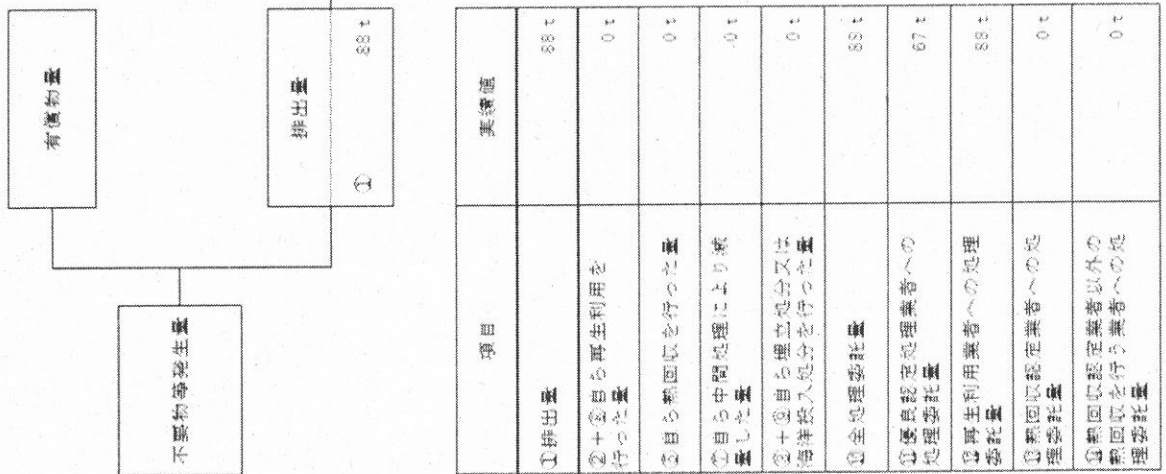 不要物等発生量
有償物量
排出量
① 88 t
項目
実績値
①排出量
88 t
②+⑧自ら再生利用を
行った量
0 t
⑤自ら熱回収を行った量
0 t
⑦自ら中間処理により減
量した量
0 t
③+⑨自ら埋立処分又は
海洋投入処分を行った量
0 t
⑩全処理委託量
88 t
⑪優良認定処理業者への
処理委託量
67 t
⑫再生利用業者への処理
委託量
88 t
⑬熱回収認定業者への処
理委託量
0 t
⑭熱回収認定業者以外の
熱回収を行う業者への処
理委託量
0 t